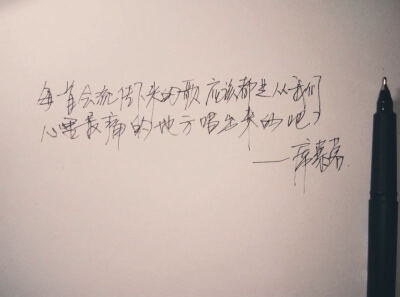 每首会流传下来的歌应该都是从我们
心里最痛的地方唱出来的吧？
——席慕蓉